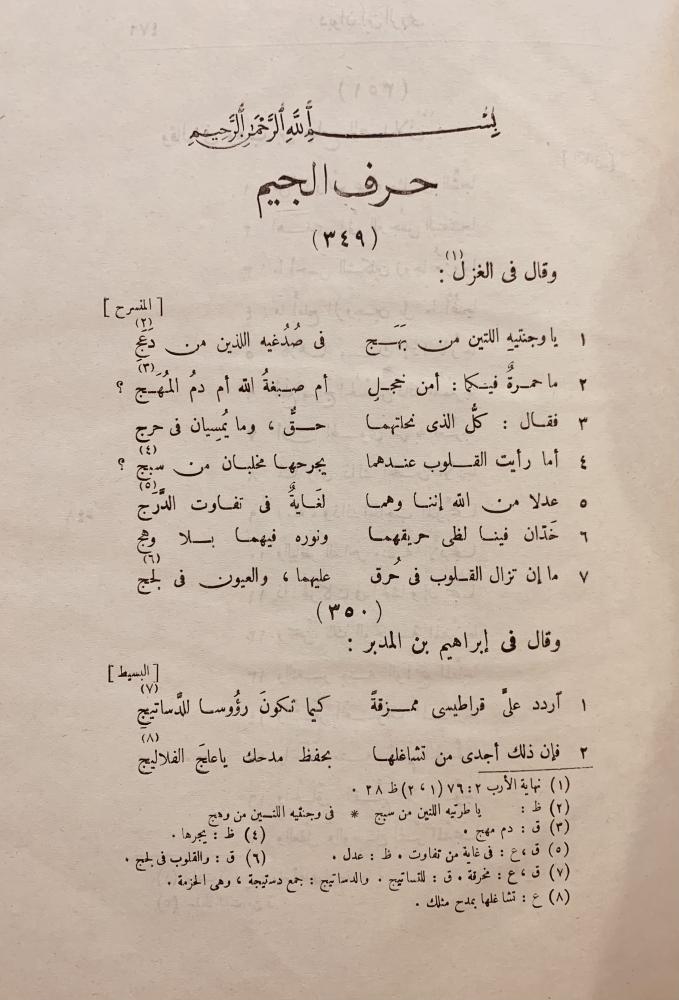 بسم الله الرحمن الرحيم
حرف الجيم
(٣٤٩)
وقال فى الغزل(١) :
[ المنسرح ]
١ يا وجنتيهِ اللتين من بَهَج فى صُدْغيه اللذين من دَعَجِ(٢)
٢ ما حمرةٌ فيكما : أمن خجلِ أم صبغةُ الله أم دمُ المُهَجِ(٣) ؟
٣ فقال : كلُّ الذى نحلتهما حقٌّ ، وما يُمسِيان فى حرجِ
٤ أما رأيت القلوب عندهما يجرحها مخلبان من سبجِ(٤) ؟
٥ عدلا من الله إننا وهما لفَايةٌ فى تفاوت الدَّرَجِ(٥)
٦ خدّان فينا لظى حريقهما ونوره فيهما بلا وهجِ
٧ ما إن تزال القلوب فى حُرق عليهما ، والعيون فى لججِ(٦)
(٣٥٠)
وقال فى إبراهيم بن المدبر :
[ البسيط ]
١ اُردد علىَّ قراطيسى ممزقةً كيما تكونَ رؤُوسا للدَّساتيجِ(٧)
٢ فإن ذلك أجدى من تشاغلها بحفظ مدحك ياعلجَ الفلاليجِ(٨)
(١) نهاية الأرب ٢ : ٧٦ (١ ، ٢) ظ ٢٨ .
(٢) ظ : يا طرتيه اللتين من سبج * فى وجنتيه اللتين من وهج
(٣) ق : دم مهج . (٤) ظ : يجرها .
(٥) ق ، ع : فى غاية من تفاوت . ظ : عدل . (٦) ق : والقلوب فى لجج .
(٧) ق ، ع : مخرقة . ق : للتساتيج . والدساتيج : جمع دستيجة ، وهى الحزمة .
(٨) ع : تشاغلها بمدح مثلك .